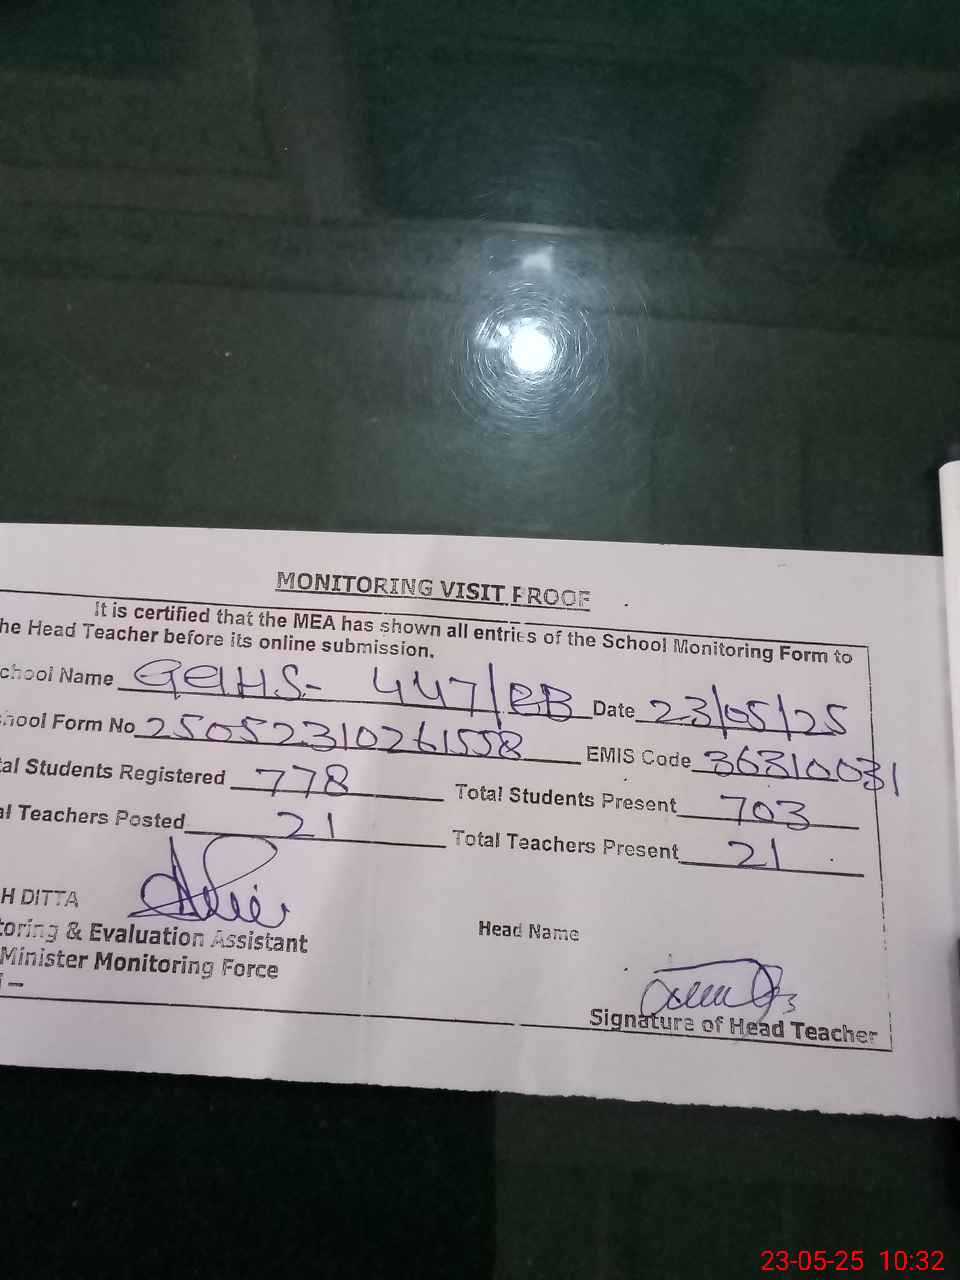 MONITORING VISIT PROOF
It is certified that the MEA has shown all entries of the School Monitoring Form to
he Head Teacher before its online submission.
chool Name GGHS- 447/EB Date 23/05/25
hool Form No 25052310261558 EMIS Code 36310031
tal Students Registered 778 Total Students Present 703
al Teachers Posted 21 Total Teachers Present 21
H DITTA
toring & Evaluation Assistant Head Name
Minister Monitoring Force
Signature of Head Teacher
23-05-25 10:32